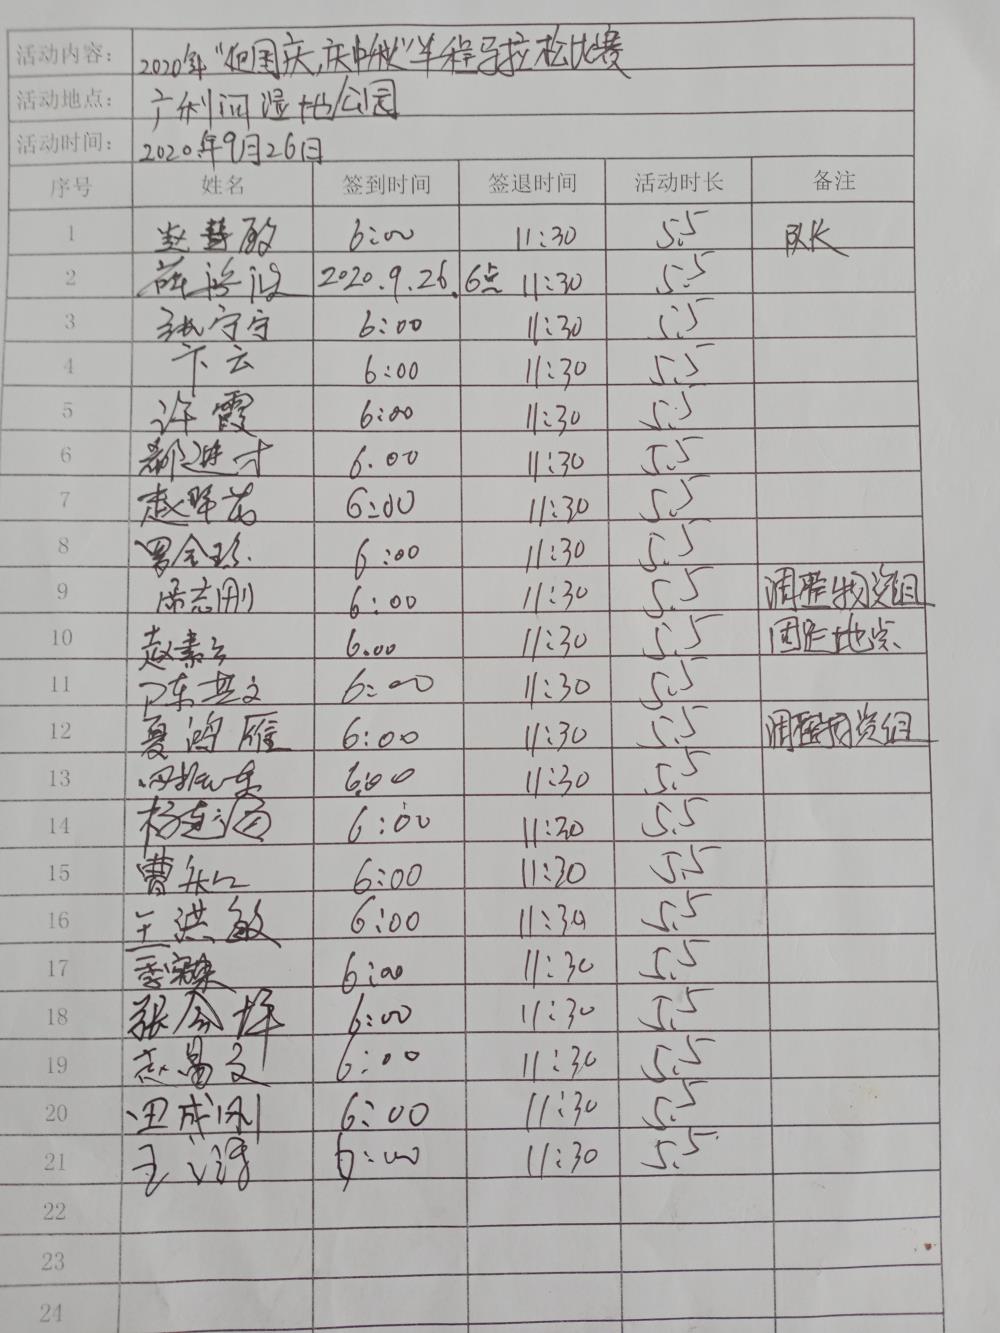 活动内容： 2020年“迎国庆,庆中秋”半程马拉松比赛
活动地点： 广利河湿地公园
活动时间： 2020年9月26日
序号 姓名 签到时间 签退时间 活动时长 备注
1 赵慧敏 6:00 11:30 5.5 队长
2 2020.9.26.6点 11:30 5.5
3 张守宁 6:00 11:30 5.5
4 卞云 6:00 11:30 5.5
5 许霞 6:00 11:30 5.5
6 进才 6.00 11:30 5.5
7 赵 6:00 11:30 5.5
8 罗金珍 6:00 11:30 5.5
9 志刚 6:00 11:30 5.5 调整物资组
10 赵素云 6.00 11:30 5.5 固定地点
11 陈 6:00 11:30 5.5
12 夏鸿雁 6:00 11:30 5.5 调整物资组
13 6:00 11:30 5.5
14 杨 6:00 11:30 5.5
15 曹 6:00 11:30 5.5
16 王洪敏 6:00 11:30 5.5
17 6:00 11:30 5.5
18 张会坪 6:00 11:30 5.5
19 文 6:00 11:30 5.5
20 田成刚 6:00 11:30 5.5
21 王 6:00 11:30 5.5
22
23
24